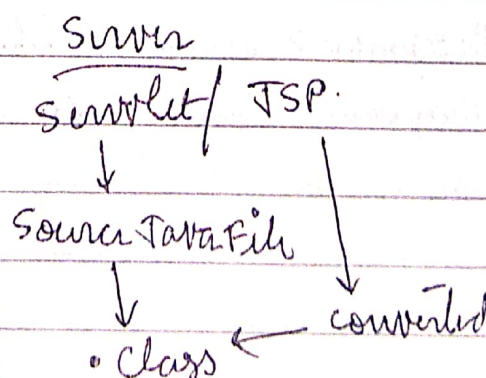 Server
Servlet/ JSP.
Source Java File
converted
.Class